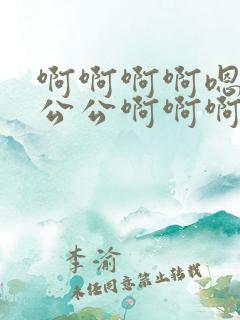 啊啊啊啊嗯
公公啊啊啊
李渝
未经同意禁止转载